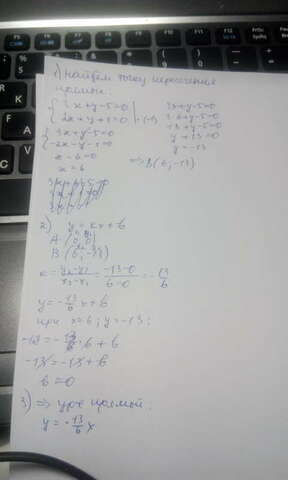 1) Найдём точку пересечения
прямых:
{ 3x+y-5=0
{ 2x+y+1=0 | ·(-1)
{ 3x+y-5=0
{ -2x-y-1=0
x-6=0
x=6
3x+y-5=0
3·6+y-5=0
18+y-5=0
y+13=0
y=-13
=> B(6;-13)
2) y=kx+b
A (0;0)
B (6;-13)
k = (y₂-y₁)/(x₂-x₁) = (-13-0)/(6-0) = -13/6
y = -13/6 x+b
при x=6; y=-13:
-13 = -13/6 ·6+b
-13=-13+b
b=0
3) => ур-е прямой:
y = -13/6 x